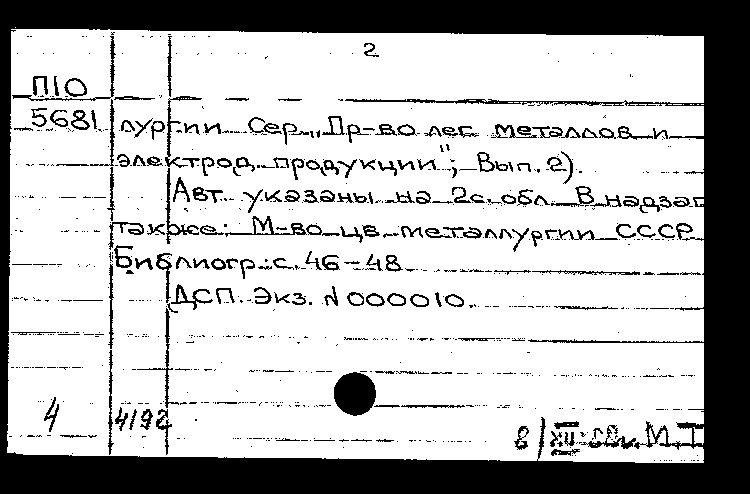 2
П10
5681
лургии. Сер. „Пр-во лег. металлов и
электрод. продукции"; Вып. 2).
Авт. указаны на 2с. обл. В надзаг
также: М-во цв. металлургии СССР
Библиогр.: с. 46-48
ДСП. Экз. N 000010.
4 4192
8/XII М.Т